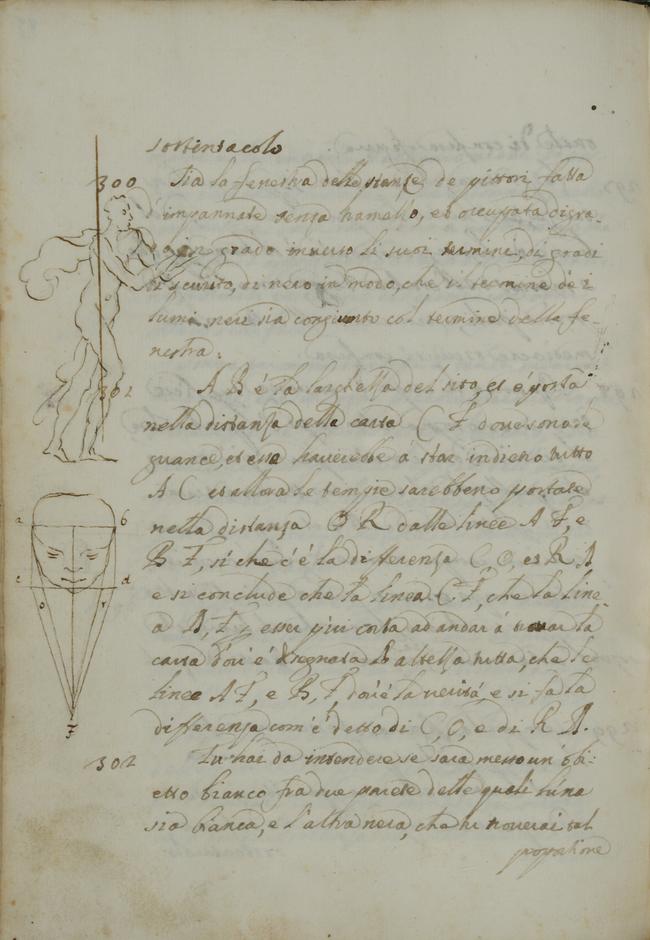 sostentacolo
300 Sia la fenestra delle stanze de pittori fatta
d'impannate senza tramello, et occupata di gra-
do in grado inverso li suoi termini, di gradi
di scurito, di nero in modo, che il termine de i
lumi non sia congiunto col termine della fe-
nestra.
301 A B é la larghezza del sito, et é posta
nella distanza della carta C F dove sono le
guance, et essa haverebbe á star indietro tutto
A C et allora le tempie sarebbero portate
nella distanza O R dalle linee A F, e
B F, sí che c'é la differenza C, O, et R D
e si conclude che la linea C F, che la line
a D, F, esser piu corta ad andar á trovar la
carta dov'é disegnata l'altezza tutta, che le
linee A F, e B, F, dov'é la veritá, e si fa la
differenza com'é detto di C, O, e di R D.
302 Tu hai da intendere se sara messo un'obi:
etto bianco fra due parete delle quali l'una
sia bianca, e l'altra nera, che tu troverai tal
proportione
a b
c d
o r
F